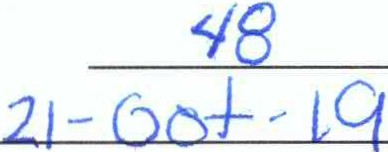 48
21-Oct-19